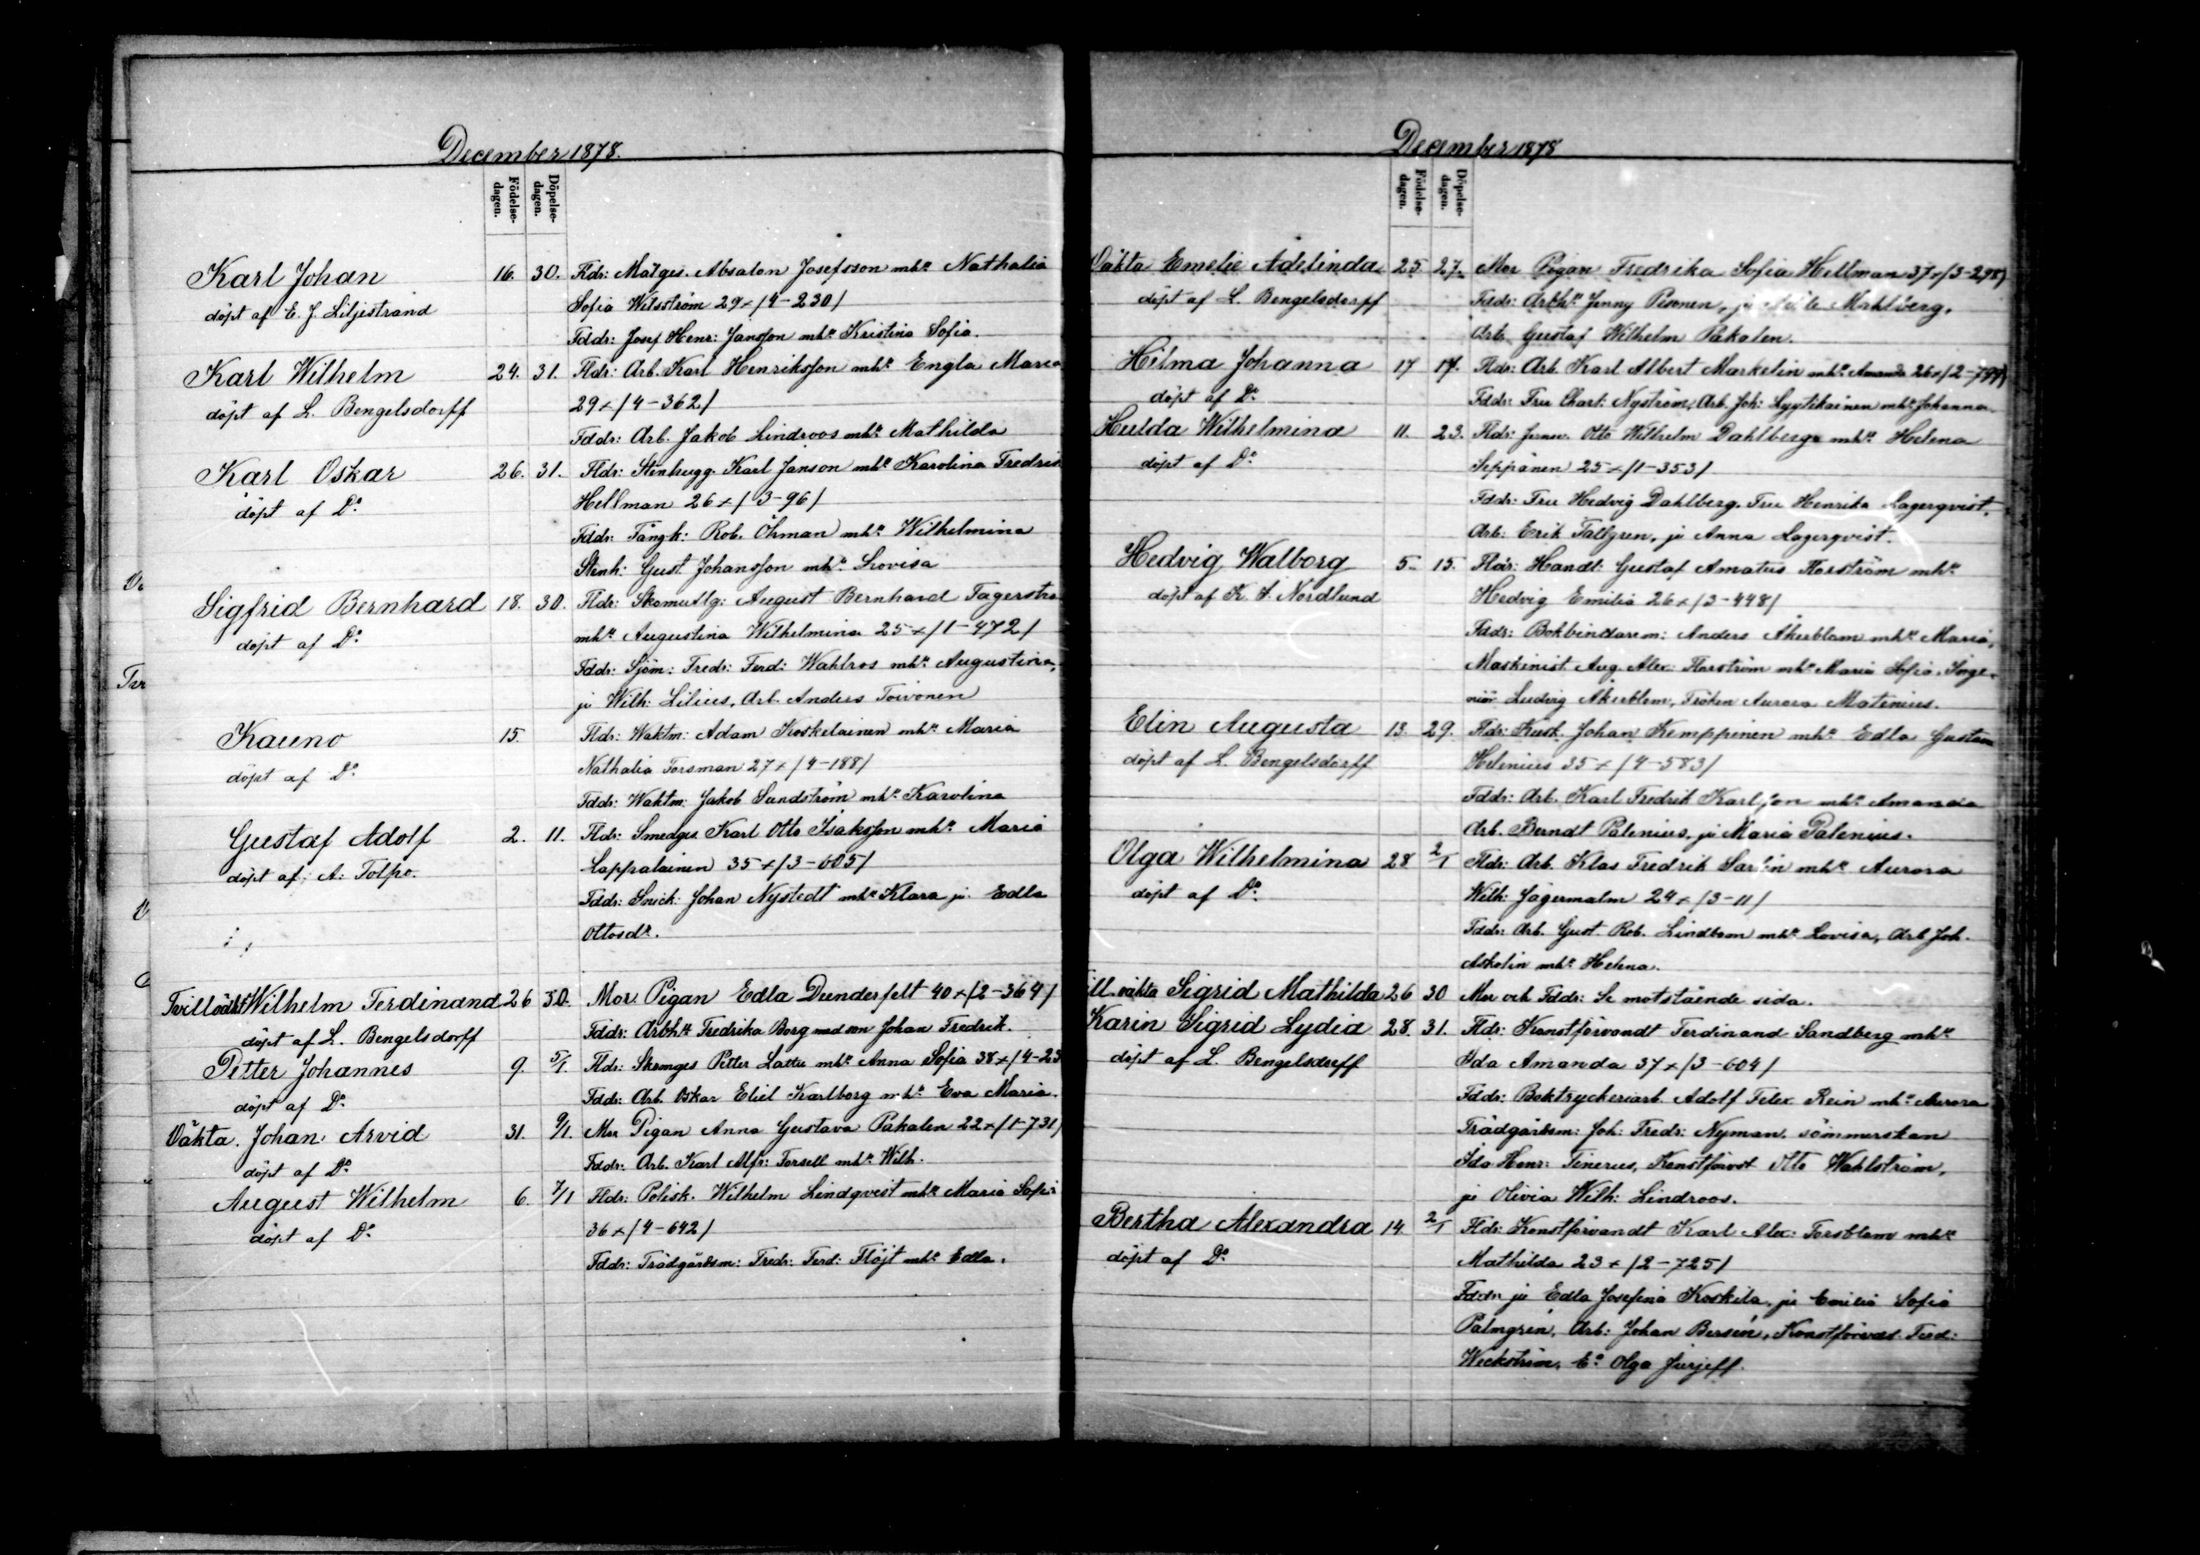 December 1878.
Födelse-
dagen.
Döpelse-
dagen.
Karl Johan 16. 30. Fldr: Matges. Absalon Josefsson mh:u Nathalia
döpt af E. J. Liljestrand Sofia Wilsström 29+/4-230/
Fddr: Josef Henr: Jansson mh:u Kristina Sofia.
Karl Wilhelm 24. 31. Fldr: Arb. Karl Henriksson mh:u Engla Maria
döpt af L. Bengelsdorff 29+/4-362/
Fddr: Arb. Jakob Lindroos mh:u Mathilda
Karl Oskar 26. 31. Fldr: Stenhugg. Karl Janson mh:u Karolina Fredrik
döpt af D:o Hellman 26+/3-96/
Fddr: Fångk: Rob. Öhman mh:u Wilhelmina
Stenh: Gust. Johansson mh:u Lovisa
Sigfrid Bernhard 18. 30. Fldr: Skomutlg: August Bernhard Fagerströ
döpt af D:o mh:u Augustina Wilhelmina 25+/1-472/
Fddr: Sjöm: Fredr: Ferd: Wahlros mh:u Augustina,
ju Wilh: Lilius, Arb. Anders Toivonen
Kauno 15. Fldr: Waktm: Adam Koskelainen mh:u Maria
döpt af D:o Nathalia Forsman 27+/4-188/
Fddr: Waktm: Jakob Sundström mh:u Karolina
Gustaf Adolf 2. 11. Fldr: Smedges. Karl Otto Isaksson mh:u Maria
döpt af A: Tolpo. Lappalainen 35+/3-605/
Fddr: Snick: Johan Nystedt mh:u Klara ju Edla
Ottosd:r.
Tvill oäkt Wilhelm Ferdinand 26 30. Mor Pigan Edla Dunderfelt 40+/2-364/
döpt af L. Bengelsdorff Fddr: Arbh:u Fredrika Borg med son Johan Fredrik.
Petter Johannes 9. 5/1 Fldr: Skomges Petter Lattu mh:u Anna Sofia 38+/4-23
döpt af D:o Fddr: Arb. Oskar Eliel Karlborg mh:u Eva Maria.
Oäkta. Johan Arvid 31. 9/1. Mor Pigan Anna Gustava Pakalen 22+/1-731/
döpt af D:o Fddr: Arb. Karl Alfr: Forsell mh:u Wilh.
August Wilhelm 6. 7/1 Fldr: Polisk. Wilhelm Lindqvist mh:u Maria Sofia
döpt af D:o 36+/4-642/
Fddr: Trädgårdsm: Fredr: Ferd: Flöjt mh:u Edla.
December 1878
Födelse-
dagen.
Döpelse-
dagen.
Oäkta Emelie Adelinda 25 27. Mor Pigan Fredrika Sofia Hellman 37+/3-298/
döpt af L. Bengelsdorff Fddr: Arbh:u Jenny Pesonen, ju Mahlberg.
Arb. Gustaf Wilhelm Pakalen.
Hilma Johanna 17 17. Fldr: Arb. Karl Albert Markelin mh:u Amanda 26+/2-799/
döpt af D:o Fddr: Fru Charl: Nyström, Arb. Joh: Lyytikainen mh:u Johanna.
Hulda Wilhelmina 11. 23. Fldr: Otto Wilhelm Dahlberg mh:u Helena
döpt af D:o Seppänen 25+/1-353/
Fddr: Fru Hedvig Dahlberg. Fru Henrika Lagerqvist.
Arb: Erik Tallgren, ju Anna Lagerqvist.
Hedvig Walborg 5. 15. Fldr: Handl: Gustaf Amatus Florström mh:u
döpt af K. J. Nordlund Hedvig Emilia 26+/3-448/
Fddr: Bokbindarem: Anders Åkerblom mh:u Maria,
Maskinist Aug. Alex: Florström mh:u Maria Sofia. Inge-
niör Ludvig Åkerblom, Fröken Aurora Matenius.
Elin Augusta 13. 29. Fldr: Kusk. Johan Kemppinen mh:u Edla Gustava
döpt af L. Bengelsdorff Helenius 35+/4-583/
Fddr: Arb. Karl Fredrik Karlsson mh:u Amanda
Arb. Berndt Palenius, ju Maria Palenius.
Olga Wilhelmina 28 2/1 Fldr: Arb. Klas Fredrik Sarlin mh:u Aurora
döpt af D:o Wilh: Jägermalm 24+/3-11/
Fddr: Arb. Gust. Rob. Lindbom mh:u Lovisa, Arb Joh.
Askolin mh:u Helena.
ill. oäkta Sigrid Mathilda 26 30 Mor och Fddr: Se motstående sida.
Karin Sigrid Lydia 28. 31. Fldr: Konstförvandt Ferdinand Sandberg mh:u
döpt af L. Bengelsdorff Ida Amanda 37+/3-604/
Fddr: Boktryckeriarb Adolf Felix Rein mh:u Aurora
Trädgårdsm: Joh: Fredr: Nyman, sömmerskan
Ida Henr: Tinerus, Konstförvdt Otto Wahlström,
ju Olivia Wilh: Lindroos.
Bertha Alexandra 14. 2/1 Fldr: Konstförvandt Karl Alex: Forsblom mh:u
döpt af D:o Mathilda 23+/2-725/
Fddr: ju Edla Josefina Koskela, ju Emilia Sofia
Palmgren, Arb: Johan Bersén, Konstförvdt Ferd:
Weckström, E:a Olga Jurjeff.